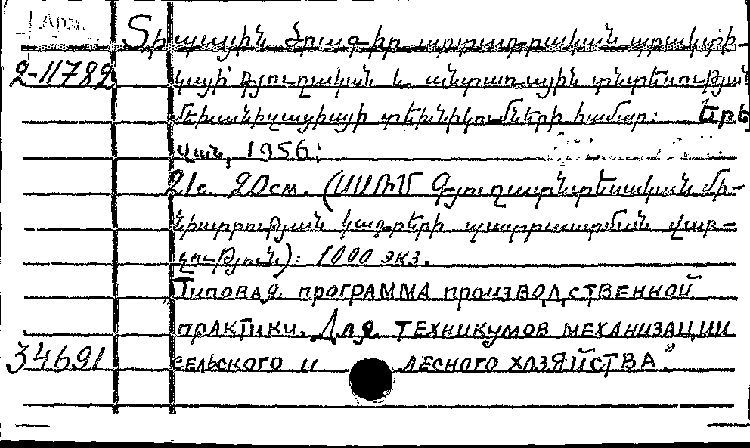 Տիպային ծրագիր արտադրական պրակտի-
2-11782 կայի գյուղական և անտառային տնտեսության
մեխանիզացիայի տեխնիկումների համար: Երե
վան, 1956:
21с. 20см. (ՍՍՌՄ Գյուղատնտեսական մի-
նիստրության կադրերի պատրաստման վար-
չություն): 1000 экз.
"Типовая программа производственной
практики. Для техникумов механизации
34691 сельского и лесного хозяйства".